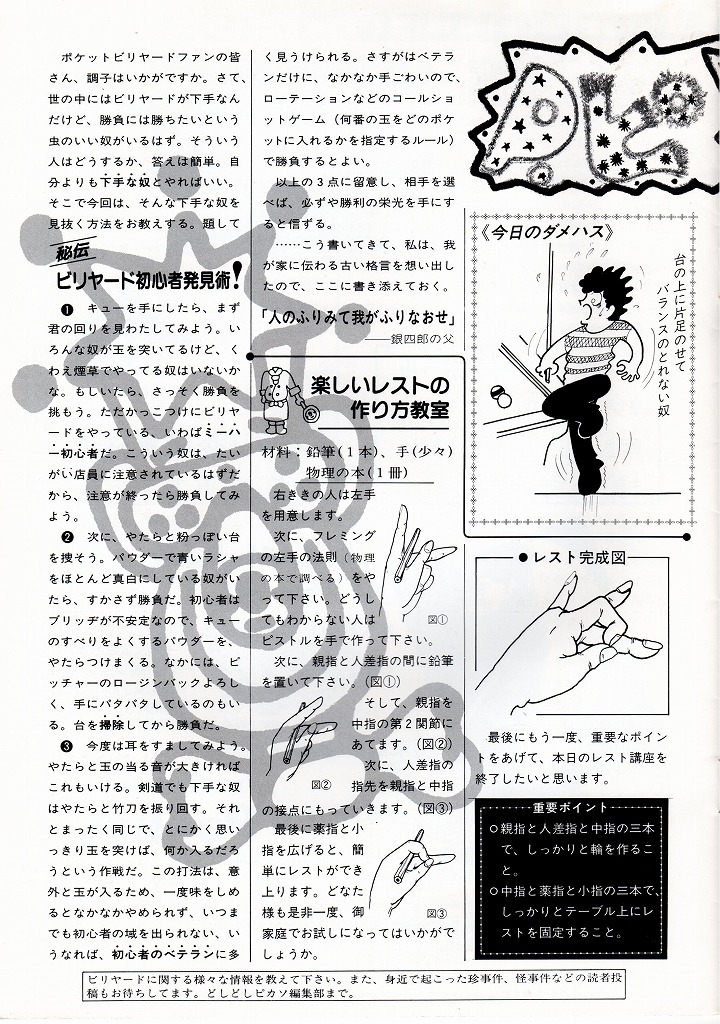 ポケットビリヤードファンの皆
さん、調子はいかがですか。さて、
世の中にはビリヤードが下手なん
だけど、勝負には勝ちたいという
虫のいい奴がいるはず。そういう
人はどうするか、答えは簡単。自
分よりも下手な奴とやればいい。
そこで今回は、そんな下手な奴を
見抜く方法をお教えする。題して
秘伝
ビリヤード初心者発見術!
❶ キューを手にしたら、まず
君の回りを見わたしてみよう。い
ろんな奴が玉を突いてるけど、く
わえ煙草でやってる奴はいないか
な。もしいたら、さっそく勝負を
挑もう。ただかっこつけにビリヤ
ードをやっている、いわばミーハ
ー初心者だ。こういう奴は、たい
がい店員に注意されているはずだ
から、注意が終ったら勝負してみ
よう。
❷ 次に、やたらと粉っぽい台
を捜そう。パウダーで青いラシャ
をほとんど真白にしている奴がい
たら、すかさず勝負だ。初心者は
ブリッヂが不安定なので、キュー
のすべりをよくするパウダーを、
やたらつけまくる。なかには、ピ
ッチャーのロージンバックよろし
く、手にパタパタしているのもい
る。台を掃除してから勝負だ。
❸ 今度は耳をすましてみよう。
やたらと玉の当る音が大きければ
これもいける。剣道でも下手な奴
はやたらと竹刀を振り回す。それ
とまったく同じで、とにかく思い
っきり玉を突けば、何か入るだろ
うという作戦だ。この打法は、意
外と玉が入るため、一度味をしめ
るとなかなかやめられず、いつま
でも初心者の域を出られない、い
うなれば、初心者のベテランに多
く見うけられる。さすがはベテラ
ンだけに、なかなか手ごわいので、
ローテーションなどのコールショ
ットゲーム(何番の玉をどのポケ
ットに入れるかを指定するルール)
で勝負するとよい。
以上の3点に留意し、相手を選
べば、必ずや勝利の栄光を手にす
ると信ずる。
……こう書いてきて、私は、我
が家に伝わる古い格言を想い出し
たので、ここに書き添えておく。
「人のふりみて我がふりなおせ」
——銀四郎の父
楽しいレストの
作り方教室
材料:鉛筆(1本)、手(少々)
物理の本(1冊)
右ききの人は左手
を用意します。
次に、フレミング
の左手の法則(物理
の本で調べる)をや
って下さい。どうし
てもわからない人は
ピストルを手で作って下さい。
図①
次に、親指と人差指の間に鉛筆
を置いて下さい。(図①)
そして、親指を
中指の第2関節に
あてます。(図②)
次に、人差指の
指先を親指と中指
図②
の接点にもっていきます。(図③)
最後に薬指と小
指を広げると、簡
単にレストができ
上ります。どなた
様も是非一度、御
図③
家庭でお試しになってはいかがで
しょうか。
ピカ
《今日のダメハス》
台の上に片足のせて
バランスのとれない奴
●レスト完成図
最後にもう一度、重要なポイン
トをあげて、本日のレスト講座を
終了したいと思います。
重要ポイント
○親指と人差指と中指の三本
で、しっかりと輪を作るこ
と。
○中指と薬指と小指の三本で、
しっかりとテーブル上にレ
ストを固定すること。
ビリヤードに関する様々な情報を教えて下さい。また、身近で起こった珍事件、怪事件などの読者投
稿もお待ちしてます。どしどしピカソ編集部まで。